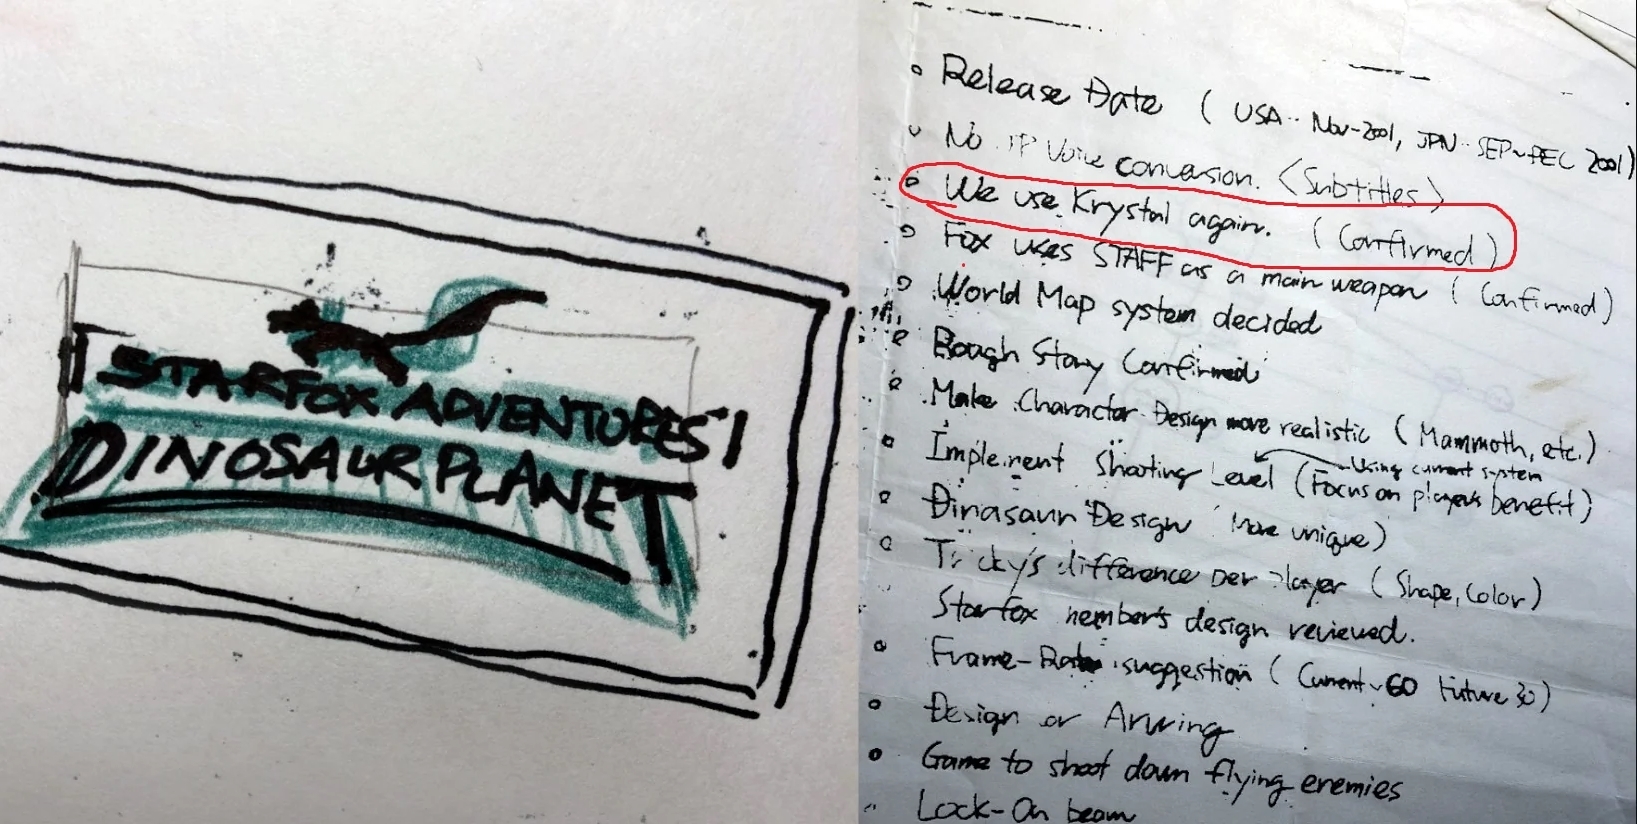 STARFOX ADVENTURES
DINOSAUR PLANET
Release Date (USA·· Nov-2001, JPN·· SEP~DEC 2001)
No JP Voice conversion. <Subtitles>
We use Krystal again. (Confirmed)
Fox uses STAFF as a main weapon (Confirmed)
World Map system decided
Rough Story Confirmed
Make Charactor Design more realistic (Mammoth, etc.)
Using current system
Implement Shooting Level (Focus on players benefit)
Dinasaur Design (More unique)
Tricky's difference per player (Shape, Color)
Starfox members design reviewed.
Frame-Rate suggestion (Current~60 Future 30)
Design or
Game to shoot down flying enemies
Lock-On beam